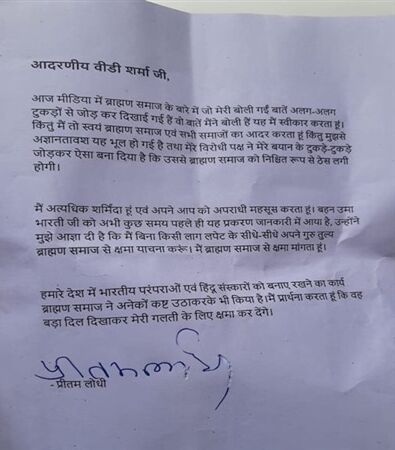 आदरणीय वीडी शर्मा जी,
आज मीडिया में ब्राह्मण समाज के बारे में जो मेरी बोली गईं बातें अलग-अलग
टुकड़ों से जोड़ कर दिखाई गई है वो बातें मैंने बोली हैं यह मैं स्वीकार करता हूं।
किंतु मैं तो स्वयं ब्राह्मण समाज एवं सभी समाजों का आदर करता हूं किंतु मुझसे
अज्ञानतावश यह भूल हो गई है तथा मेरे विरोधी पक्ष ने मेरे बयान के टुकड़े-टुकड़े
जोड़कर ऐसा बना दिया है कि उससे ब्राह्मण समाज को निश्चित रूप से ठेस लगी
होगी।
मैं अत्यधिक शर्मिंदा हूं एवं अपने आप को अपराधी महसूस करता हूं। बहन उमा
भारती जी को अभी कुछ समय पहले ही यह प्रकरण जानकारी में आया है, उन्होंने
मुझे आज्ञा दी है कि मैं बिना किसी लाग लपेट के सीधे-सीधे अपने गुरु तुल्य
ब्राह्मण समाज से क्षमा याचना करू। मैं ब्राह्मण समाज से क्षमा मांगता हूं।
हमारे देश में भारतीय परंपराओं एवं हिंदू संस्कारों को बनाए रखने का कार्य
ब्राह्मण समाज ने अनेकों कष्ट उठाकरके भी किया है।मैं प्रार्थना करता हूं कि वह
बड़ा दिल दिखाकर मेरी गलती के लिए क्षमा कर देंगे।
प्रीतम लोधी
- प्रीतम लोधी